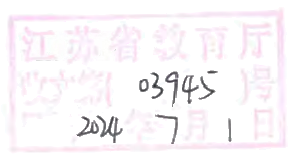 江苏省教育厅
收文第(03945)号
2024年7月1日